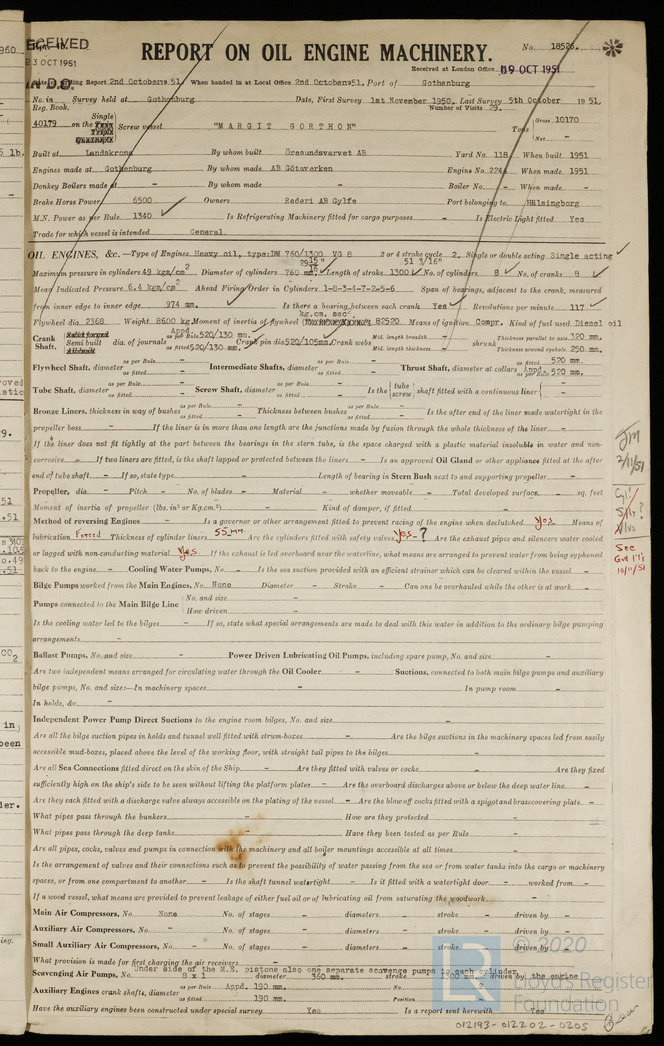 RECEIVED
3 OCT 1951
IN D.O.
REPORT ON OIL ENGINE MACHINERY.
No. 18526.
Received at London Office 19 OCT 1951
Date of writing Report 2nd October 1951. When handed in at Local Office 2nd October 1951. Port of Gothenburg
No. in Reg. Book. Survey held at Gothenburg Date, First Survey 1st November 1950. Last Survey 5th October 1951.
Number of Visits 29.
40179 on the Single Screw vessel "MARGIT GORTHON" Tons Gross 10170 Net -
Built at Landskrona By whom built Öresundsvarvet AB Yard No. 118 When built 1951
Engines made at Gothenburg By whom made AB Götaverken Engine No. 224 When made 1951
Donkey Boilers made at - By whom made - Boiler No. - When made -
Brake Horse Power 6500 Owners Rederi AB Gylfe Port belonging to Hälsingborg
M.N. Power as per Rule 1340 Is Refrigerating Machinery fitted for cargo purposes - Is Electric Light fitted Yes
Trade for which vessel is intended General.
OIL ENGINES, &c. —Type of Engines Heavy oil, type: DM 760/1300 VG 8 2 or 4 stroke cycle 2. Single or double acting Single acting
Maximum pressure in cylinders 49 kg/cm2 Diameter of cylinders 760 mm. 29 15/16" Length of stroke 1300 51 3/16" No. of cylinders 8 No. of cranks 8
Mean Indicated Pressure 6.4 kg/cm2 Ahead Firing Order in Cylinders 1-8-3-4-7-2-5-6 Span of bearings, adjacent to the crank, measured
from inner edge to inner edge 974 mm. Is there a bearing between each crank Yes Revolutions per minute 117
Flywheel dia. 2368 Weight 8600 kg. Moment of inertia of flywheel kg.cm. sec2 82520 Means of ignition Compr. Kind of fuel used Diesel oil
Crank Shaft, Solid forged Semi built All built dia. of journals as per Rule Appd. 520/130 mm. as fitted 520/130 mm. Crank pin dia. 520/105 mm. Crank webs Mid. length breadth - Mid. length thickness - shrunk Thickness parallel to axis 320 mm. Thickness around eyehole 250 mm.
Flywheel Shaft, diameter as per Rule - as fitted - Intermediate Shafts, diameter as per Rule - as fitted - Thrust Shaft, diameter at collars as per Rule Appd. 520 mm. as fitted 520 mm.
Tube Shaft, diameter as per Rule - as fitted - Screw Shaft, diameter as per Rule - as fitted - Is the {tube screw} shaft fitted with a continuous liner -
Bronze Liners, thickness in way of bushes as per Rule - as fitted - Thickness between bushes as per Rule - as fitted - Is the after end of the liner made watertight in the
propeller boss - If the liner is in more than one length are the junctions made by fusion through the whole thickness of the liner -
If the liner does not fit tightly at the part between the bearings in the stern tube, is the space charged with a plastic material insoluble in water and non-
corrosive - If two liners are fitted, is the shaft lapped or protected between the liners - Is an approved Oil Gland or other appliance fitted at the after
end of tube shaft - If so, state type - Length of bearing in Stern Bush next to and supporting propeller -
Propeller, dia. - Pitch - No. of blades - Material - whether moveable - Total developed surface - sq. feet
Moment of inertia of propeller (lbs. in² or Kg.cm².) - Kind of damper, if fitted -
Method of reversing Engines - Is a governor or other arrangement fitted to prevent racing of the engine when declutched Yes Means of
lubrication Forced Thickness of cylinder liners 55 mm. Are the cylinders fitted with safety valves Yes-? Are the exhaust pipes and silencers water cooled
or lagged with non-conducting material Yes. If the exhaust is led overboard near the waterline, what means are arranged to prevent water from being syphoned
back to the engine - Cooling Water Pumps, No. - Is the sea suction provided with an efficient strainer which can be cleared within the vessel -
Bilge Pumps worked from the Main Engines, No. None Diameter - Stroke - Can one be overhauled while the other is at work -
Pumps connected to the Main Bilge Line No. and size - How driven -
Is the cooling water led to the bilges - If so, state what special arrangements are made to deal with this water in addition to the ordinary bilge pumping
arrangements -
Ballast Pumps, No. and size - Power Driven Lubricating Oil Pumps, including spare pump, No. and size -
Are two independent means arranged for circulating water through the Oil Cooler - Suctions, connected to both main bilge pumps and auxiliary
bilge pumps, No. and size:—In machinery spaces - In pump room -
In holds, &c. -
Independent Power Pump Direct Suctions to the engine room bilges, No. and size -
Are all the bilge suction pipes in holds and tunnel well fitted with strum-boxes - Are the bilge suctions in the machinery spaces led from easily
accessible mud-boxes, placed above the level of the working floor, with straight tail pipes to the bilges -
Are all Sea Connections fitted direct on the skin of the Ship - Are they fitted with valves or cocks - Are they fixed
sufficiently high on the ship's side to be seen without lifting the platform plates - Are the overboard discharges above or below the deep water line -
Are they each fitted with a discharge valve always accessible on the plating of the vessel - Are the blow off cocks fitted with a spigot and brass covering plate -
What pipes pass through the bunkers - How are they protected -
What pipes pass through the deep tanks - Have they been tested as per Rule -
Are all pipes, cocks, valves and pumps in connection with the machinery and all boiler mountings accessible at all times -
Is the arrangement of valves and their connections such as to prevent the possibility of water passing from the sea or from water tanks into the cargo or machinery
spaces, or from one compartment to another - Is the shaft tunnel watertight - Is it fitted with a watertight door - worked from -
If a wood vessel, what means are provided to prevent leakage of either fuel oil or of lubricating oil from saturating the woodwork -
Main Air Compressors, No. None No. of stages - diameters - stroke - driven by -
Auxiliary Air Compressors, No. - No. of stages - diameters - stroke - driven by -
Small Auxiliary Air Compressors, No. - No. of stages - diameters - stroke - driven by -
What provision is made for first charging the air receivers -
Under side of the M.E. pistons also one separate scavenge pump to each cylinder
Scavenging Air Pumps, No. 8 x 1 diameter 360 mm. stroke 1300 mm. driven by the engine
Auxiliary Engines crank shafts, diameter as per Rule Appd. 190 mm. as fitted 190 mm. No. 2 Position -
Have the auxiliary engines been constructed under special survey Yes Is a report sent herewith Yes
2/11/51
See
10/11/51
© 2020
Lloyd's Register
Foundation
012193-012202-0205